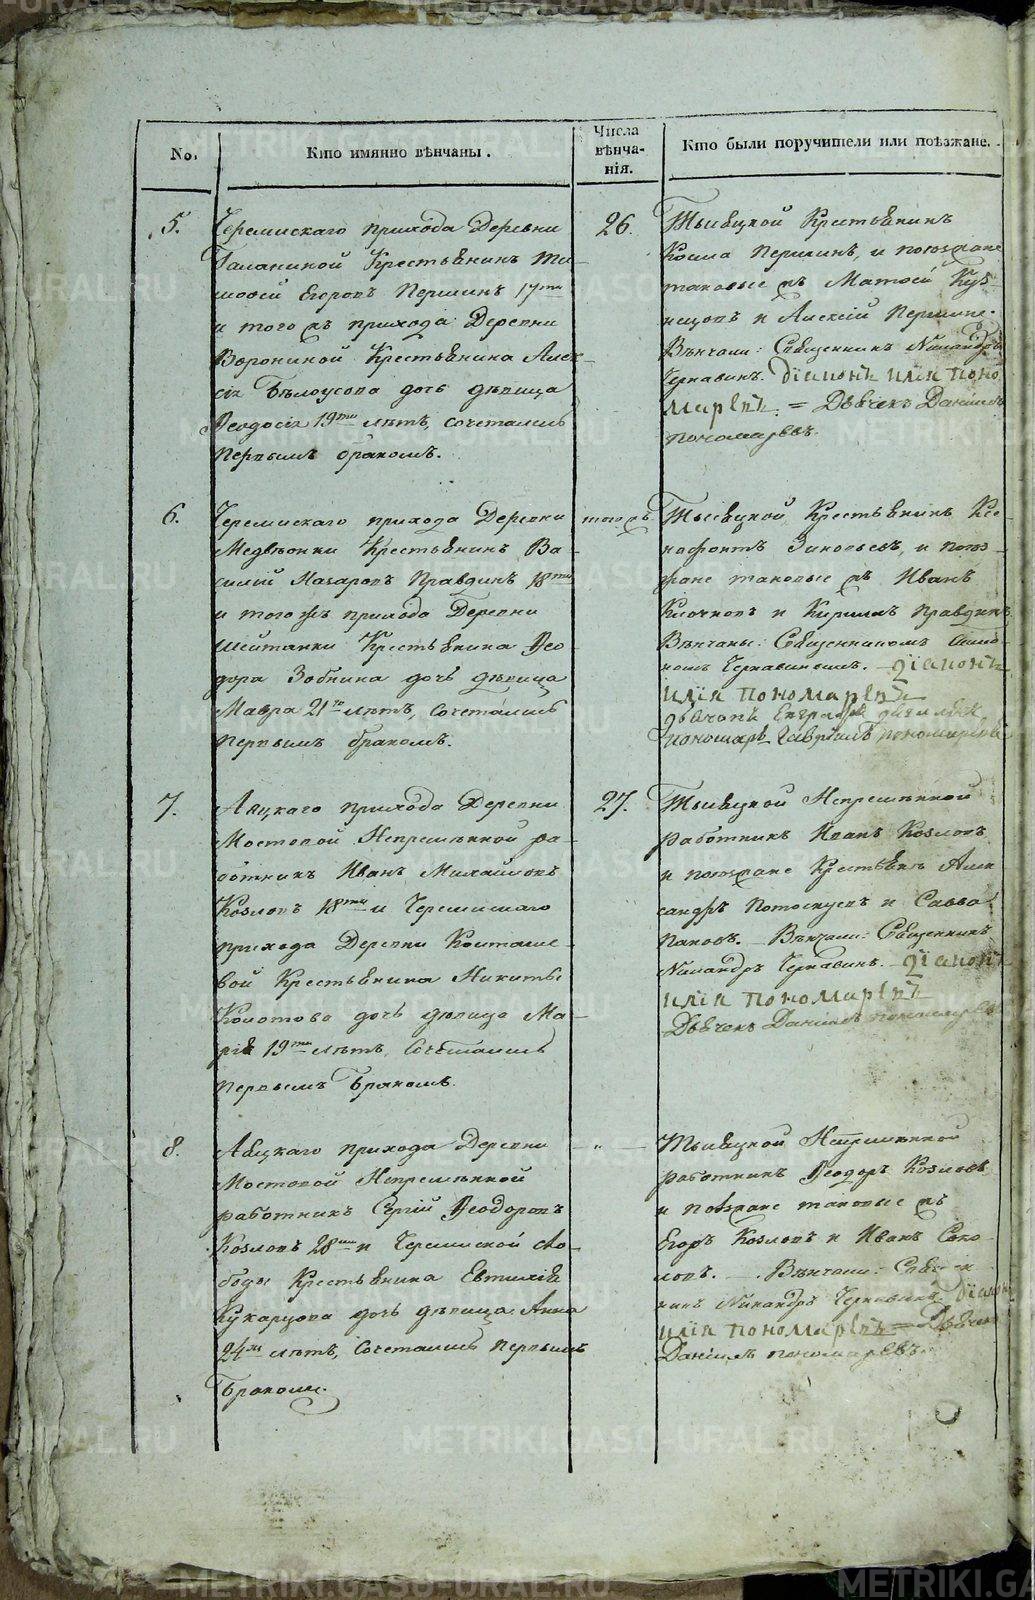 No.
Кто имянно вѣнчаны.
Числа
вѣнча-
нія.
Кто были поручители или поѣзжане.
5.
Черемискаго прихода Деревни
Галаниной Крестьянинъ Ти-
моѳей Егоровъ Першинъ 17ти
и того жъ прихода Деревни
Ворониной Крестьянина Алек-
сія Бѣлоусова дочь дѣвица
Ѳеодосія 19ти лѣтъ, сочетались
первымъ бракомъ.
26.
Крестьянинъ
Косма Першинъ, и поѣзжане
таковые жъ Матѳей Куз-
нецовъ и Алексій Першинъ.
Вѣнчали: Священникъ Никандръ
Чернавинъ. діаконъ илія поно
маревъ. = Дьячекъ Даніилъ
пономаревъ.
6.
Черемискаго прихода Деревни
Медвѣдки Крестьянинъ Ва-
силій Назаровъ Правдинъ 18ти
и того жъ прихода Деревни
Шайтанки Крестьянина Ѳео-
дора Зобнина дочь дѣвица
Мавра 21го лѣтъ, сочетались
первымъ бракомъ.
того жъ
Крестьянинъ Ксе-
нофонтъ Зиновьевъ, и поѣз-
жане таковые жъ Иванъ
Клочковъ и Кирилъ Правдинъ
Вѣнчаны: Священникомъ
Чернавинымъ. діаконъ
илія пономаревъ
дьячекъ Евграфъ
пономарь Гавріилъ пономаревъ
7.
Аяцкаго прихода Деревни
Мостовой Непремѣнной ра-
ботникъ Иванъ Михайловъ
Козловъ 18ти и Черемискаго
прихода Деревни Колташе-
вой Крестьянина Никиты
Колотова дочь дѣвица Ма-
рія 19ти лѣтъ, Сочетались
первымъ Бракомъ.
27.
Непремѣнной
работникъ Иванъ Козловъ
и поѣзжане Крестьяне Алек
сандръ Потоскуевъ и Савва
Пановъ. Вѣнчали: Священникъ
Никандръ Чернавинъ. діаконъ
илія пономаревъ
Дьячекъ Даніилъ пономаревъ
8.
Аяцкаго прихода Деревни
Мостовой Непремѣнной
работникъ Сергій Ѳеодоровъ
Козловъ 28ми и Черемиской Сло-
боды Крестьянина Евтихія
Кукарцова дочь дѣвица Анна
24хъ лѣтъ, Сочетались первымъ
Бракомъ.
— „ —
Непремѣнной
работникъ Ѳеодоръ Козловъ
и поѣзжане таковые жъ
Егоръ Козловъ и Иванъ Соко-
ловъ. Вѣнчали: Священ
никъ Никандръ Чернавинъ. діаконъ
илія пономаревъ = Дьячекъ
Даніилъ пономаревъ.
METRIKI.GASO-URAL.RU